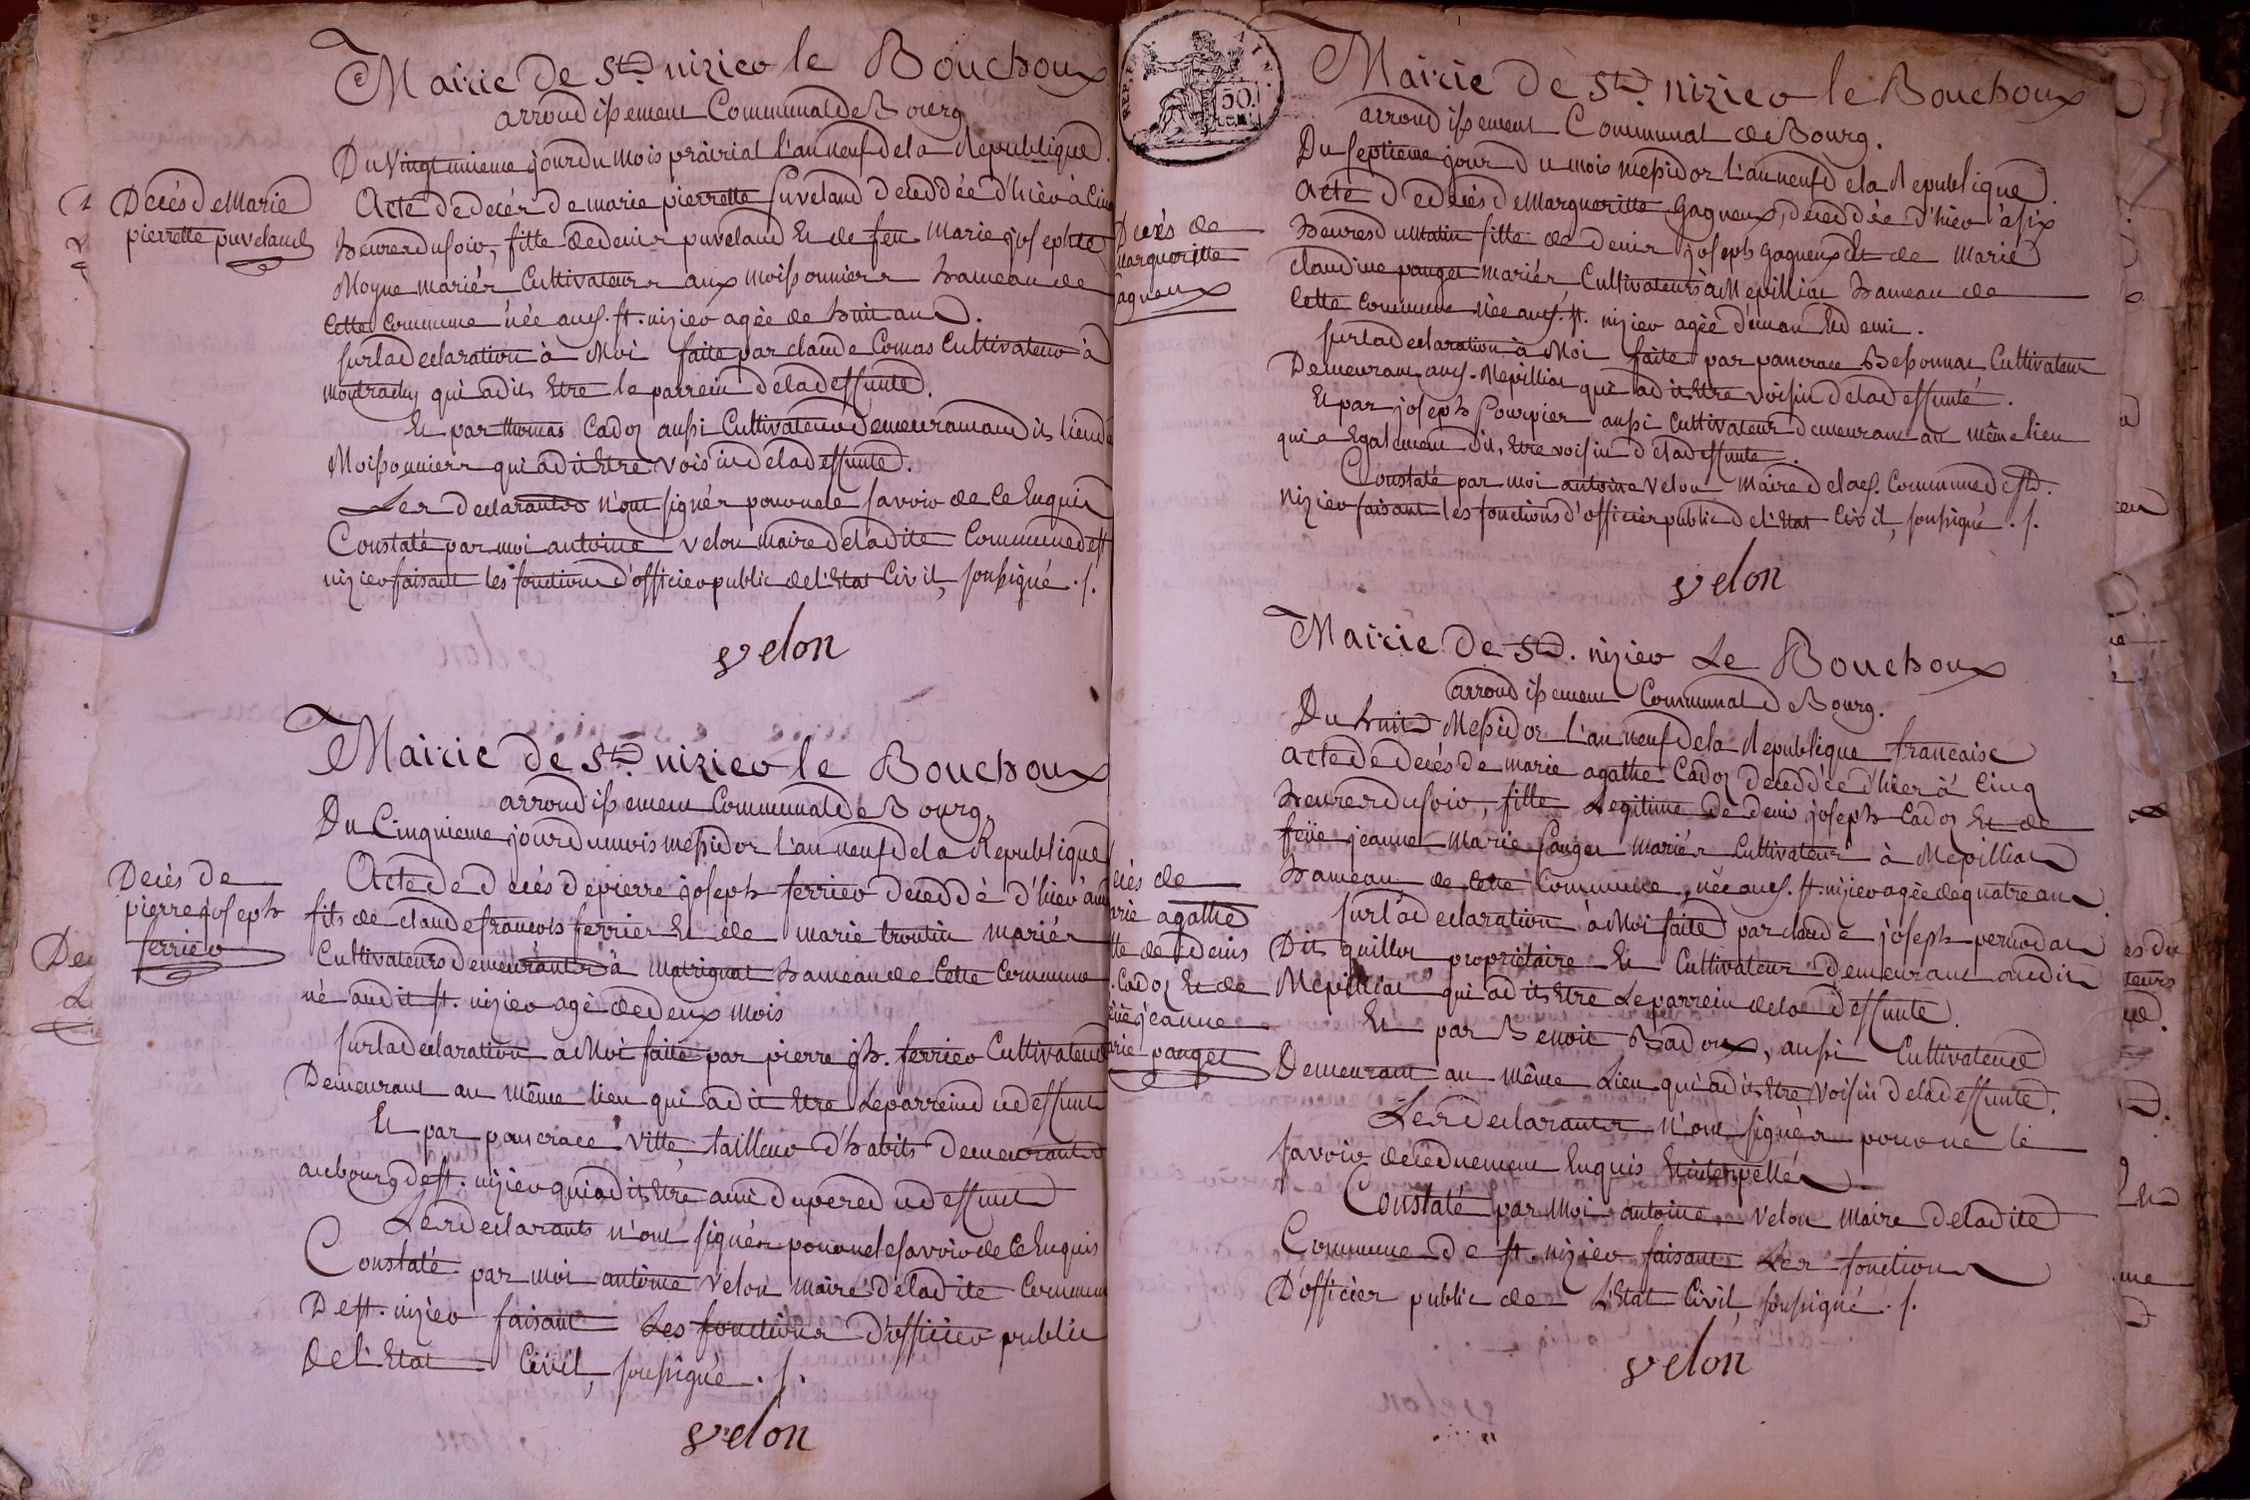 Mairie de St. nizier le Bouchoux
arrondissement Communal de Bourg
Du Vingt unieme jour du mois prairial l'an neuf de la Republique.
Decés de Marie
pierrette puveland
Acte de decés de marie pierrette puveland deceddée d'hier à Cinq
heures du soir, fille de denis puveland Et de feu Marie josephte
Moyne mariés Cultivateurs aux moissonniers hameau de
Cette Commune née aud. st. nizier agée de huit ans.
sur la declaration à Moi faite par claude Comas Cultivateur à
qui a dit Etre le parrein de la deffunte.
Et par thomas Cadoz aussi Cultivateur demeurant audit lieu de
Moissonniers qui a dit Etre voisin de la deffunte.
Les declarants n'ont signés pour ne le savoir de Ce Enquis
Constaté par moi antoine velon maire de ladite Commune de st
nizier faisant les fonctions d'officier public de l'Etat Civil, soussigné . /.
velon
Mairie de St. nizier le Bouchoux
arrondissement Communal de Bourg.
Du Cinquieme jour du mois messidor l'an neuf de la Republique
Decés de
pierre joseph
ferrier
Acte de decés de pierre joseph ferrier deceddé d'hier
fils de claude francois ferrier Et de marie troutin mariés
Cultivateurs demeurants à matignat hameau de Cette Commune
né audit st. nizier agé de deux mois
sur la declaration a Moi faite par pierre jh. ferrier Cultivateur
Demeurant au même lieu qui a dit Etre Le parrein du deffunt
Et par pancrace vitte, tailleur d'habits demeurant
au bourg de st. nizier qui a dit Etre ami du pere du deffunt
Les declarants n'ont signés pour ne le savoir de Ce Enquis
Constaté par moi antoine velon maire de ladite Commune
De st. nizier faisant Les fonctions d'officier public
de l'Etat Civil, soussigné . /.
velon
50
Mairie de St. nizier le Bouchoux
arrondissement Communal de Bourg.
Du septieme jour du mois messidor l'an neuf de la Republique.
Decés de
margueritte
gagneux
Acte de decés de Margueritte gagneux, deceddée d'hier à six
heures du matin fille de denis joseph gagneux Et de Marie
claudine pauget mariés Cultivateurs à Mépilliat hameau de
Cette Commune née aud. st. nizier agée d'un an Et demi.
sur la declaration à Moi faite par pancrace Bessonnat Cultivateur
Demeurant aud. Mepilliat qui a dit Etre voisin de la deffunte.
Et par joseph pourpier aussi Cultivateur demeurant au même lieu
qui a Egalement dit Etre voisin de la deffunte.
Constaté par moi antoine velon maire de lad. Commune de st.
nizier faisant les fonctions d'officier public de l'Etat Civil, soussigné . /.
velon
Mairie de St. nizier Le Bouchoux
arrondissement Communal de Bourg.
Du huit Messidor l'an neuf de la Republique francaise
Acte de decés de marie agathe Cadoz deceddée d'hier à Cinq
heures du soir, fille Legitime de denis joseph Cadoz Et de
feüe jeanne Marie pauget mariés Cultivateurs à Mépilliat
hameau de Cette Commune, née aud. st. nizier agée de quatre ans.
ecés de
arie agathe
lle de denis
Cadoz Et de
eüe jeanne
arie pauget
sur la declaration à Moi faite par claude joseph
Dit quillot propriétaire Et Cultivateur demeurant audit
Mépilliat qui a dit Etre Le parrein de la deffunte.
Et par Benoit Badoux, aussi Cultivateur
Demeurant au même Lieu qui a dit Etre voisin de la deffunte.
Les declarants n'ont signés pour ne le
savoir de Ce duement Enquis Et interpellés
Constaté par Moi antoine velon maire de ladite
Commune de st. nizier faisant Les fonctions
D'officier public de L'Etat Civil, soussigné . /.
velon